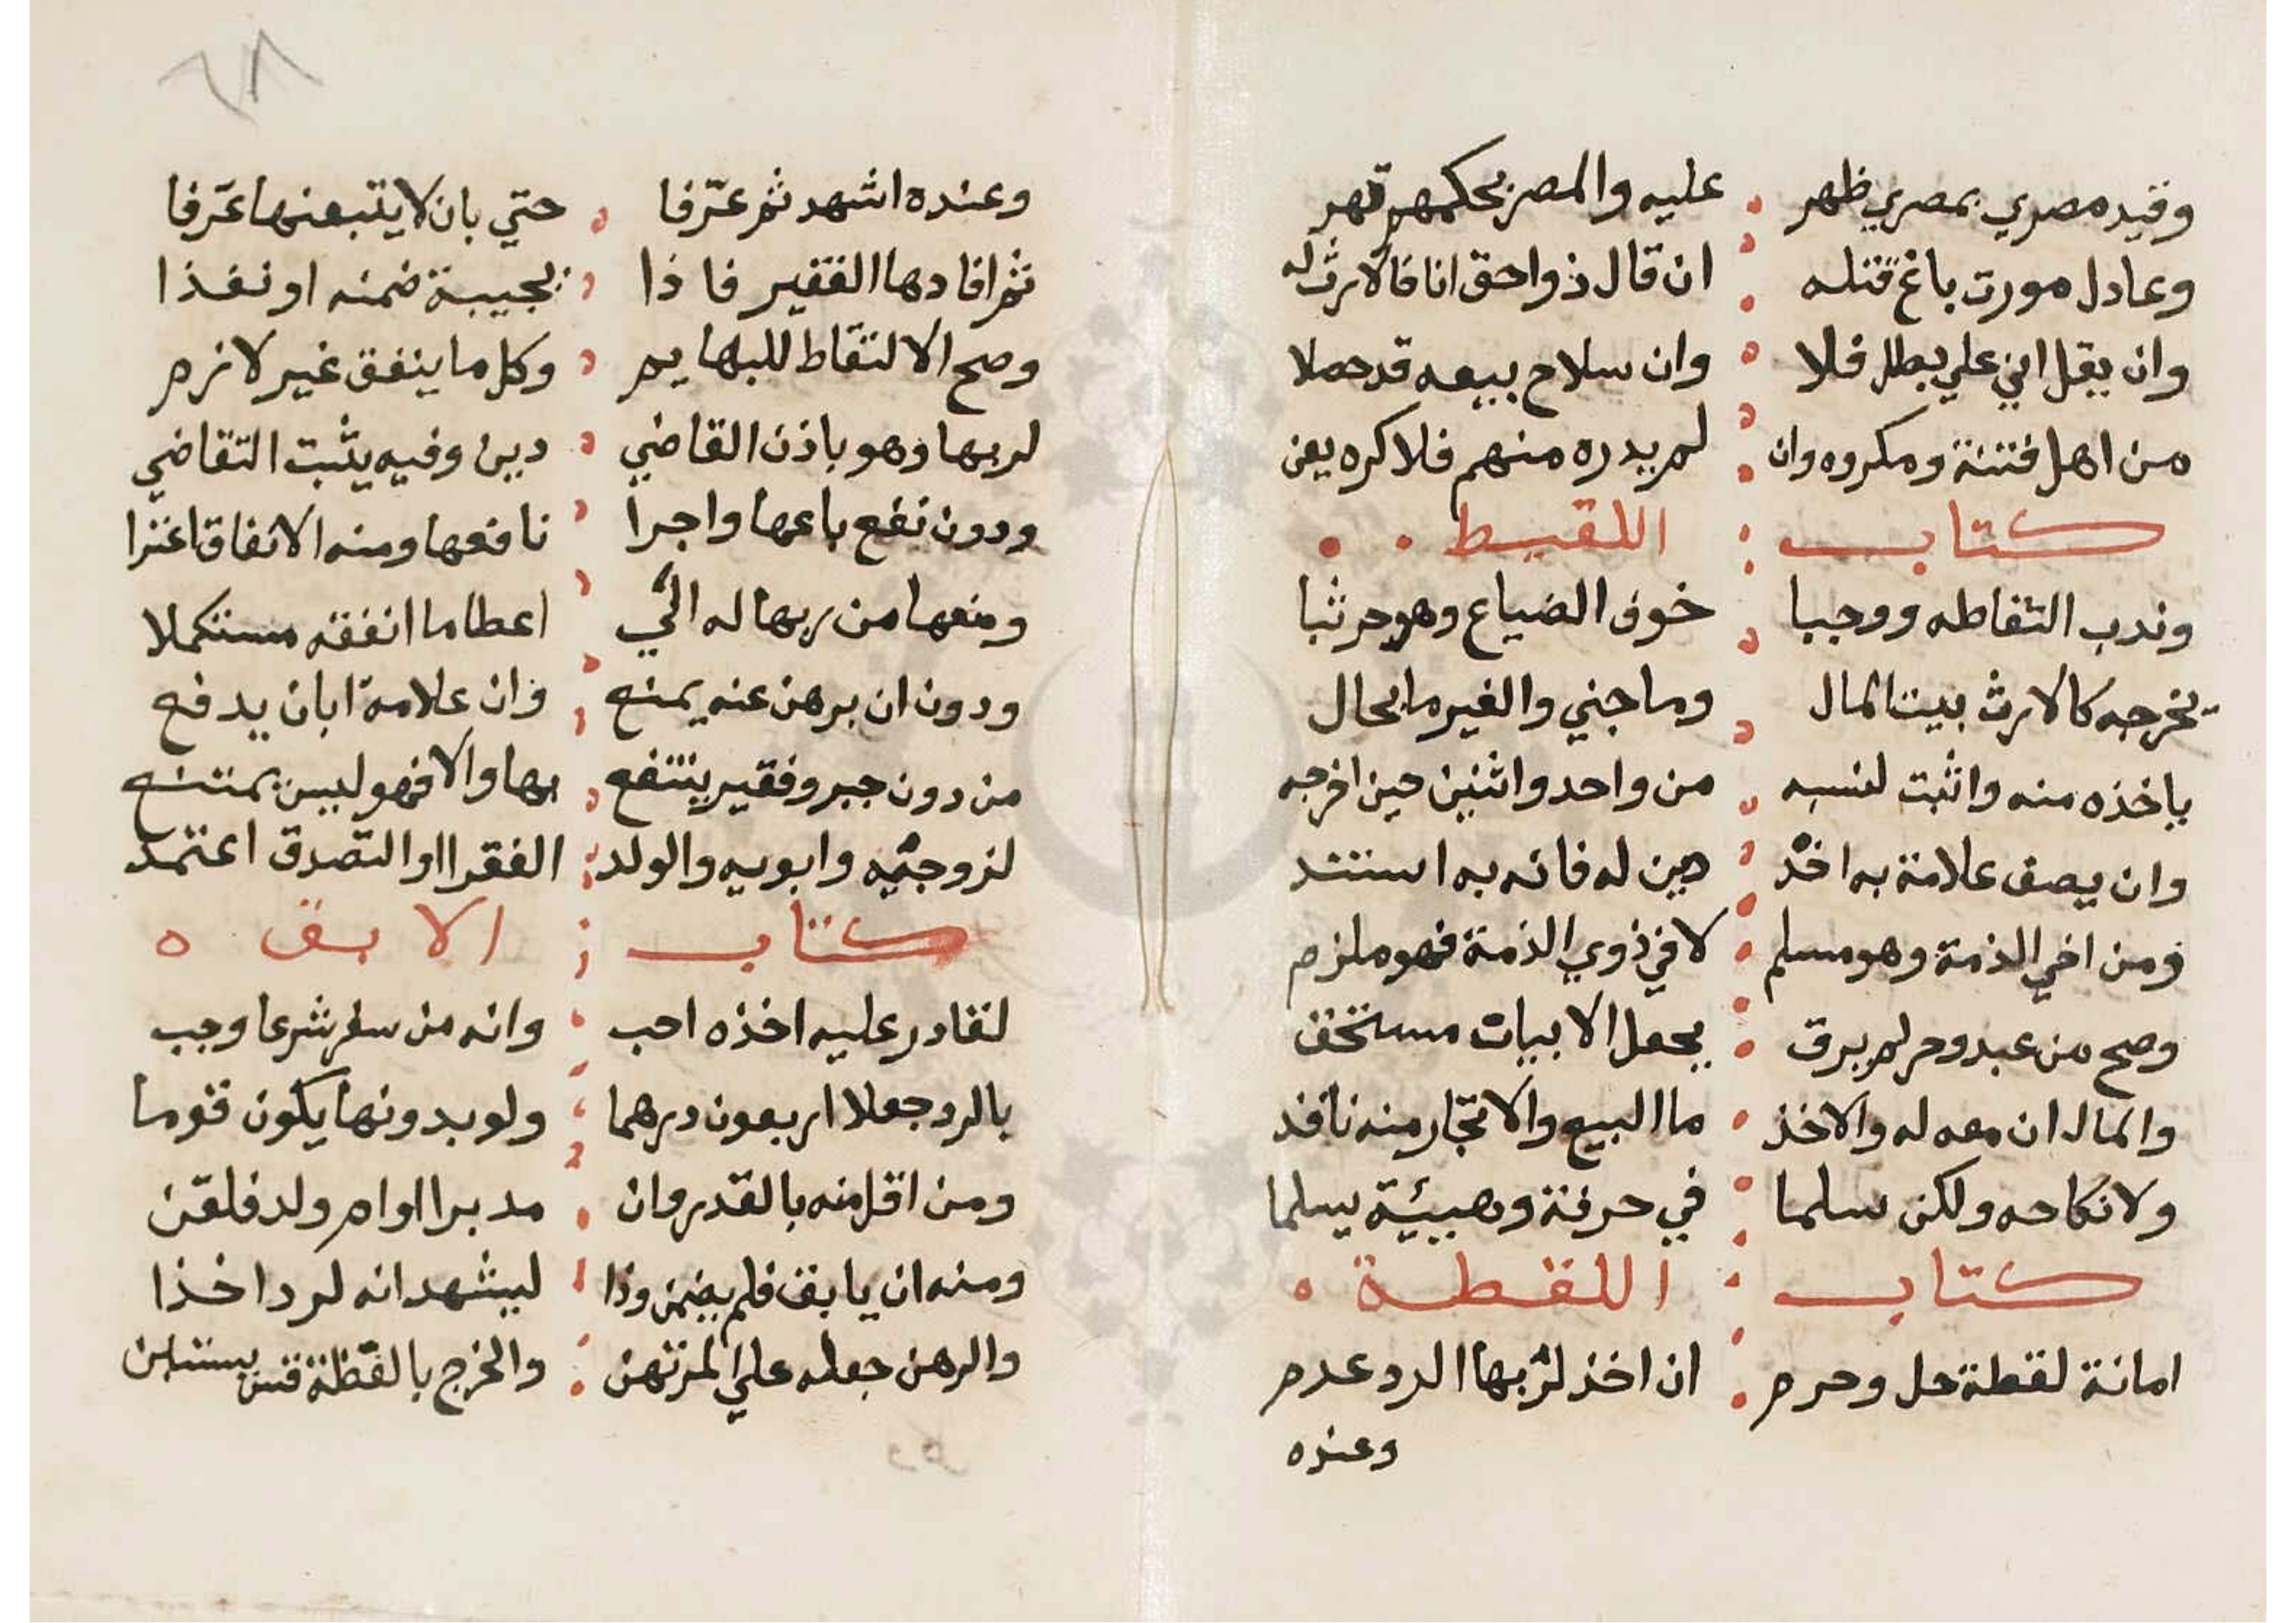 وقيد مصري بمصري ظهر عليه والمصر بحكمهم قهر
وعادل مورث باغ قتله ان قال ذواحق انا فالارث له
وان يقل اني علي بطل فلا وان سلاح بيعه قد حملا
من اهل فتنة ومكروه وان لم يدره منهم فلا كره يعن
كتاب اللقيط
وندب التقاطه ووجبا خوف الضياع وهو حر نثبا
يخرجه كالارث بيت المال وما جني والغير ما بحال
ياخذه منه واثبت لنسبه من واحد واثنين حين اخرجه
وان يصف علامة به احد دين له فانه به استند
ومن اخي الذمة وهو مسلم لا في ذوي الذمة فهو ملزم
وصح من عبد وحر لم يرق بجعل الابيات مستحق
والمال ان معه له والاخذ ما البيع والاتجار منه نافذ
ولا نكاحه ولكن سلما في حرفة وهبيئة يسلما
كتاب اللقطة
امانة لقطة حل وحرم ان اخذ لربها الرد عدم
وعنده
٦٨
وعنده اشهد ثم عرفا حتي بان لا يتبعنها عرفا
ثم افادها الفقير فاذا بجيبة ضمنه او نفذا
وصح الالتقاط للبهايم وكل ما ينفق غير لازم
لربها وهو باذن القاضي دين وفيه يثبت التقاضي
ودون نفع باعها واجرا نافعها ومنه الانفاق اعترا
ومنعها من ربها له الي اعطا ما انفقه مستكملا
ودون ان برهن عنه يمنع وان علامة ابان يدفع
من دون جبر وفقير ينتفع بها والا فهو ليس بمتنع
لزوجته وابويه والولد الفقرا او التصدق اعتمد
كتاب الابق
لقادر عليه اخذه احب وانه من سفر شرعا وجب
بالرد جعلا اربعون درهما ولو بدونها يكون قوما
ومن اقل منه بالقدر وان مدبرا او ام ولد فلقن
ومنه ان يابق فلم يضمن وذا ليشهد انه لرد اخذا
والرهن جعله علي المرتهن والخرج بالقطة قس يستبن